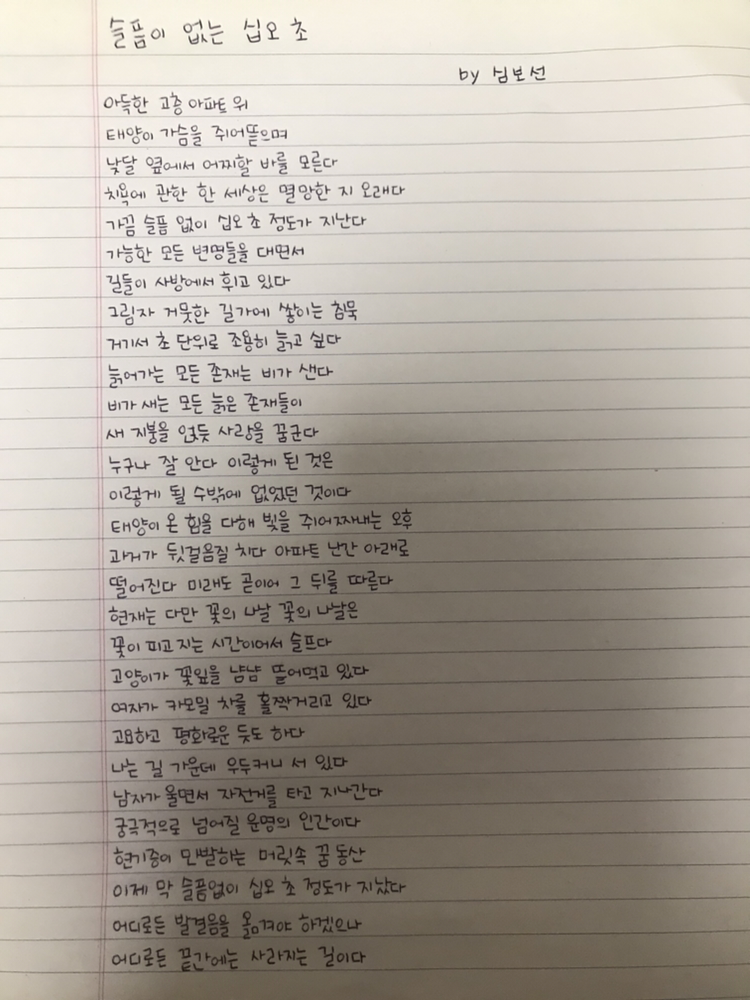 슬픔이 없는 십오 초
by 심보선
아득한 고층 아파트 위
태양이 가슴을 쥐어뜯으며
낮달 옆에서 어찌할 바를 모른다
치욕에 관한 한 세상은 멸망한 지 오래다
가끔 슬픔 없이 십오 초 정도가 지난다
가능한 모든 변명들을 대면서
길들이 사방에서 휘고 있다
그림자 거뭇한 길가에 쌓이는 침묵
거기서 초 단위로 조용히 늙고 싶다
늙어가는 모든 존재는 비가 샌다
비가 새는 모든 늙은 존재들이
새 지붕을 얹듯 사랑을 꿈꾼다
누구나 잘 안다 이렇게 된 것은
이렇게 될 수밖에 없었던 것이다
태양이 온 힘을 다해 빛을 쥐어짜내는 오후
과거가 뒷걸음질 치다 아파트 난간 아래로
떨어진다 미래도 곧이어 그 뒤를 따른다
현재는 다만 꽃의 나날 꽃의 나날은
꽃이 피고 지는 시간이어서 슬프다
고양이가 꽃잎을 냠냠 뜯어먹고 있다
여자가 카모밀 차를 홀짝거리고 있다
고요하고 평화로운 듯도 하다
나는 길 가운데 우두커니 서 있다
남자가 울면서 자전거를 타고 지나간다
궁극적으로 넘어질 운명의 인간이다
현기증이 만발하는 머릿속 꿈 동산
이제 막 슬픔없이 십오 초 정도가 지났다
어디로든 발걸음을 옮겨야 하겠으나
어디로든 끝간에는 사라지는 길이다